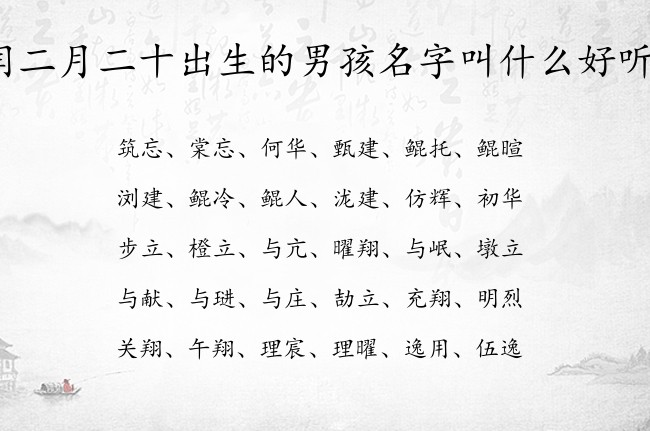 闰二月二十出生的男孩名字叫什么好听
筑忘、棠忘、何华、甄建、鲲托、鲲暄
浏建、鲲冷、鲲人、泷建、仿辉、初华
步立、橙立、与亢、曜翔、与岷、墩立
与献、与琎、与庄、劼立、充翔、明烈
关翔、午翔、理宸、理曜、逸用、伍逸